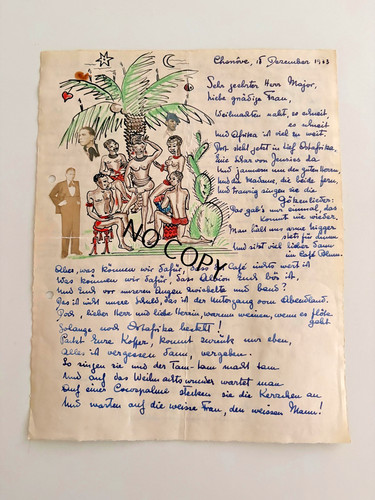 Chenôve, 15 Dezember 1963
Sehr geehrter Herr Major,
liebe gnädige Frau,
Weihnachten naht, es schneit
es schneit
und Afrika ist viel zu weit.
Dort steht jetzt in tief Ostafrika,
und jammern um den guten Herrn
und d. Madame, die beide fern.
und traurig singen sie die
Götzenlieder:
Das gab's nur einmal, das
kommt nie wieder.
Man
und sitzt viel lieber dann
im Café
NO COPY
Aber, was können wir dafür, dass d. Café nichts wert ist
Was können wir dafür, dass Albion
Und Euch vor unsere Augen
Das ist nicht unsere Schuld, das ist der Untergang vom Abendland.
Doch, lieber Herr und liebe Herrin, warum weinen, wenn es flöte
geht
Solange noch Ostafrika besteht!
Packt Eure Koffer, kommt zurück nur eben,
Alles ist vergessen dann, vergeben.
So singen sie und der Tam-tam macht tam
Und auf das Weihnachtswunder wartet man
Auf einer Cocospalme stecken sie die Kerzchen an
Und warten auf die weisse Frau, den weissen Mann!